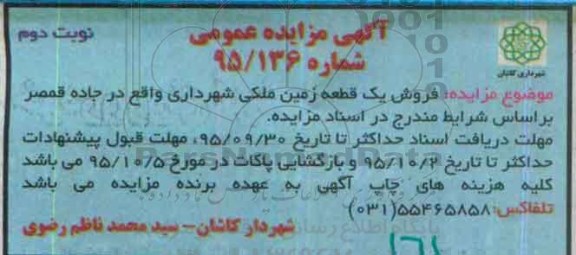 آگهی مزایده عمومی
شماره ۹۵/۱۳۶
نوبت دوم
شهرداری کاشان
موضوع مزایده: فروش یک قطعه زمین ملکی شهرداری واقع در جاده قمصر
براساس شرایط مندرج در اسناد مزایده.
مهلت دریافت اسناد حداکثر تا تاریخ ۹۵/۰۹/۳۰، مهلت قبول پیشنهادات
حداکثر تا تاریخ ۹۵/۱۰/۲ و بازگشایی پاکات در مورخ ۹۵/۱۰/۵ می باشد
کلیه هزینه های چاپ آگهی به عهده برنده مزایده می باشد
تلفاکس: ۵۵۴۶۵۸۵۸(۰۳۱)
شهردار کاشان – سید محمد ناظم رضوی